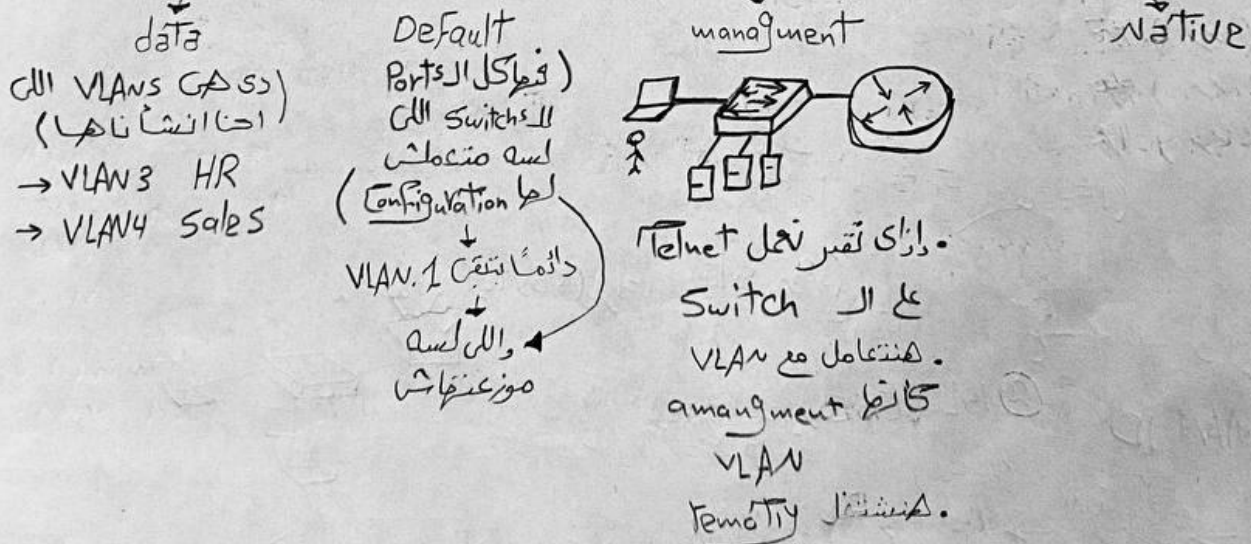 data
دى هى VLANs اللى)
(احنا انشأناها
→ VLAN3 HR
→ VLAN4 Sales
Default
(فيها كل الـ Ports
للـ Switchs اللى
لسه متعملش
لها Configuration)
دائمًا بتبقى VLAN.1
واللى لسه
موزعنهاش
managment
. إزاى نقدر نعمل Telnet
على الـ Switch
. هنتعامل مع VLAN
كأنها amangment
VLAN
. هنشتغل remotly
Native